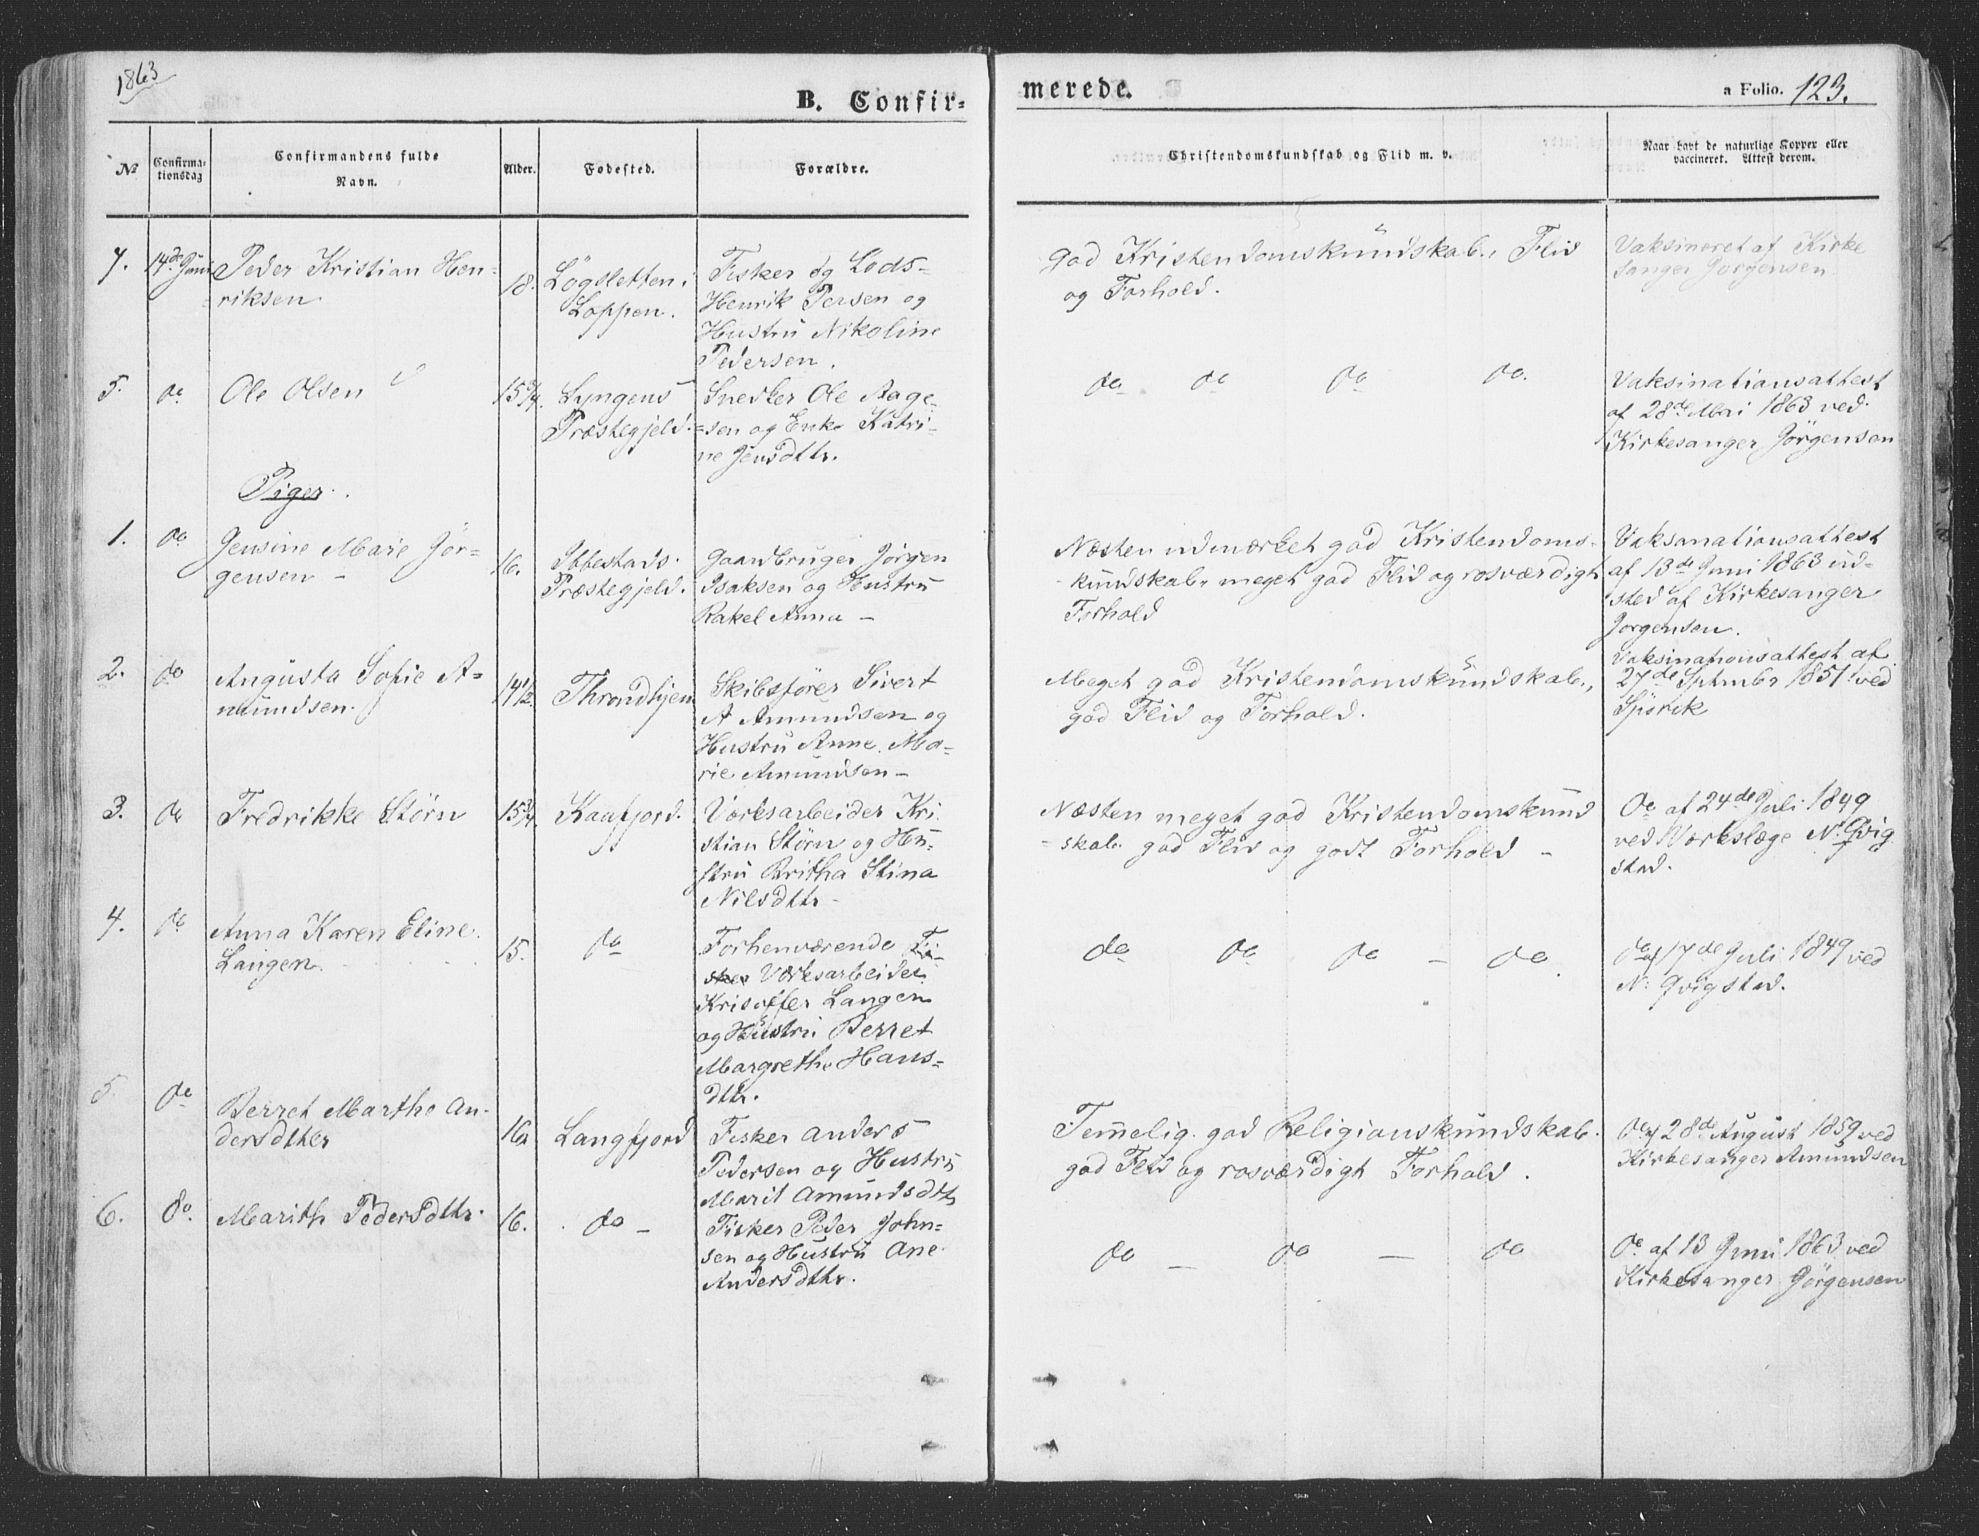 1863
B. Confir=
merede.
a Folio. 123.
№
Confirma-
tionsdag
Confirmandens fulde
Navn.
Alder.
Fødested.
Forældre.
Christendomskundskab og Flid m. v.
Naar havt de naturlige Kopper eller
vaccineret. Attest derom.
14de Juni
Peder Kristian Hen-
riksen
18.
Løgsletten i
Loppen.
Fisker og Lods
Henrik Persen og
Hustru Nikoline
Pedersen.
God Kristendomskundskab, Flid
og Forhold.
Vaksineret af Kirke
sanger Jorgensen
5.
do
Ole Olsen
15 3/4.
Lyngens
Præstegjeld.
Snedker Ole Aage-
sen og Enke Katri-
ne Jensdttr.
do do do do.
Vaksinationsattest
af 28de Mai 1863 ved
Kirkesanger Jörgensen
Piger.
1.
do
Jensine Marie Jör-
gensen -
16.
Ibbestads
Præstegjeld.
Gaardbruger Jörgen
Isaksen og Hustru
Rakel Anna -
Næsten udmærket god Kristendoms-
kundskab, meget god Flid og rosværdigt
Forhold
Vaksanationsattest
af 13de Juni 1863 ud-
sted af Kirkesanger
Jorgensen.
2.
do
Augusta Sofie A-
mundsen.
14 1/2.
Throndhjem
Skibsfører Sivert
A Amundsen og
Hustru Anne Ma-
rie Amundsen -
Meget god Kristendomskundskab,
god Flid og Forhold.
Vaksinationsattest af
27de Septmbr 1851 ved
3.
do
Fredrikke Störn
15 3/4.
Kaafjord.
Værksarbeider Kri
stian Störn og Hu-
stru Britha Stina
Nilsdttr -
Næsten meget god Kristendomskund
- skab, god Flid og godt Forhold -
Do af 24de Juli 1849
ved Værkslæge N. Qvig
stad.
4.
do
Anna Karen Eline
Langen
15.
do
Forhenværende Fi-
sker Værksarbeider
Krisoffer Langen
og Hustru Berret
Margrethe Hans-
dttr.
do do do - do.
do af 17de Juli 1849 ved
N. Qvigstad.
5.
do
Berret Marthe An-
dersdtter
16
Langfjord
Fisker Anders
Pedersen og Hustru
Marit Amundsdttr
Temmelig god Religionskundskab.
god Flid og rosværdigt Forhold.
Do af 28de August 1859 ved
Kirkesanger Amundsen
6.
do.
Marith Pedersdttr.
16.
do -
Fisker Peder John-
sen og Hustru Ane
Andersdttr.
do - do - do
Do af 13 Juni 1863 ved
Kirkesanger Jörgensen